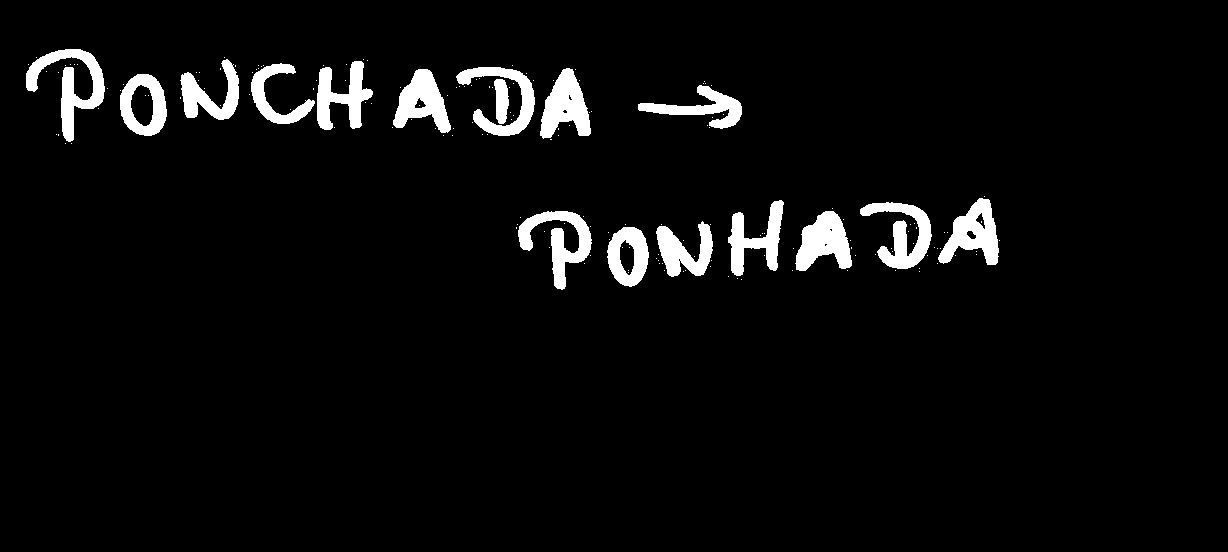 PONCHADA →
PONHADA